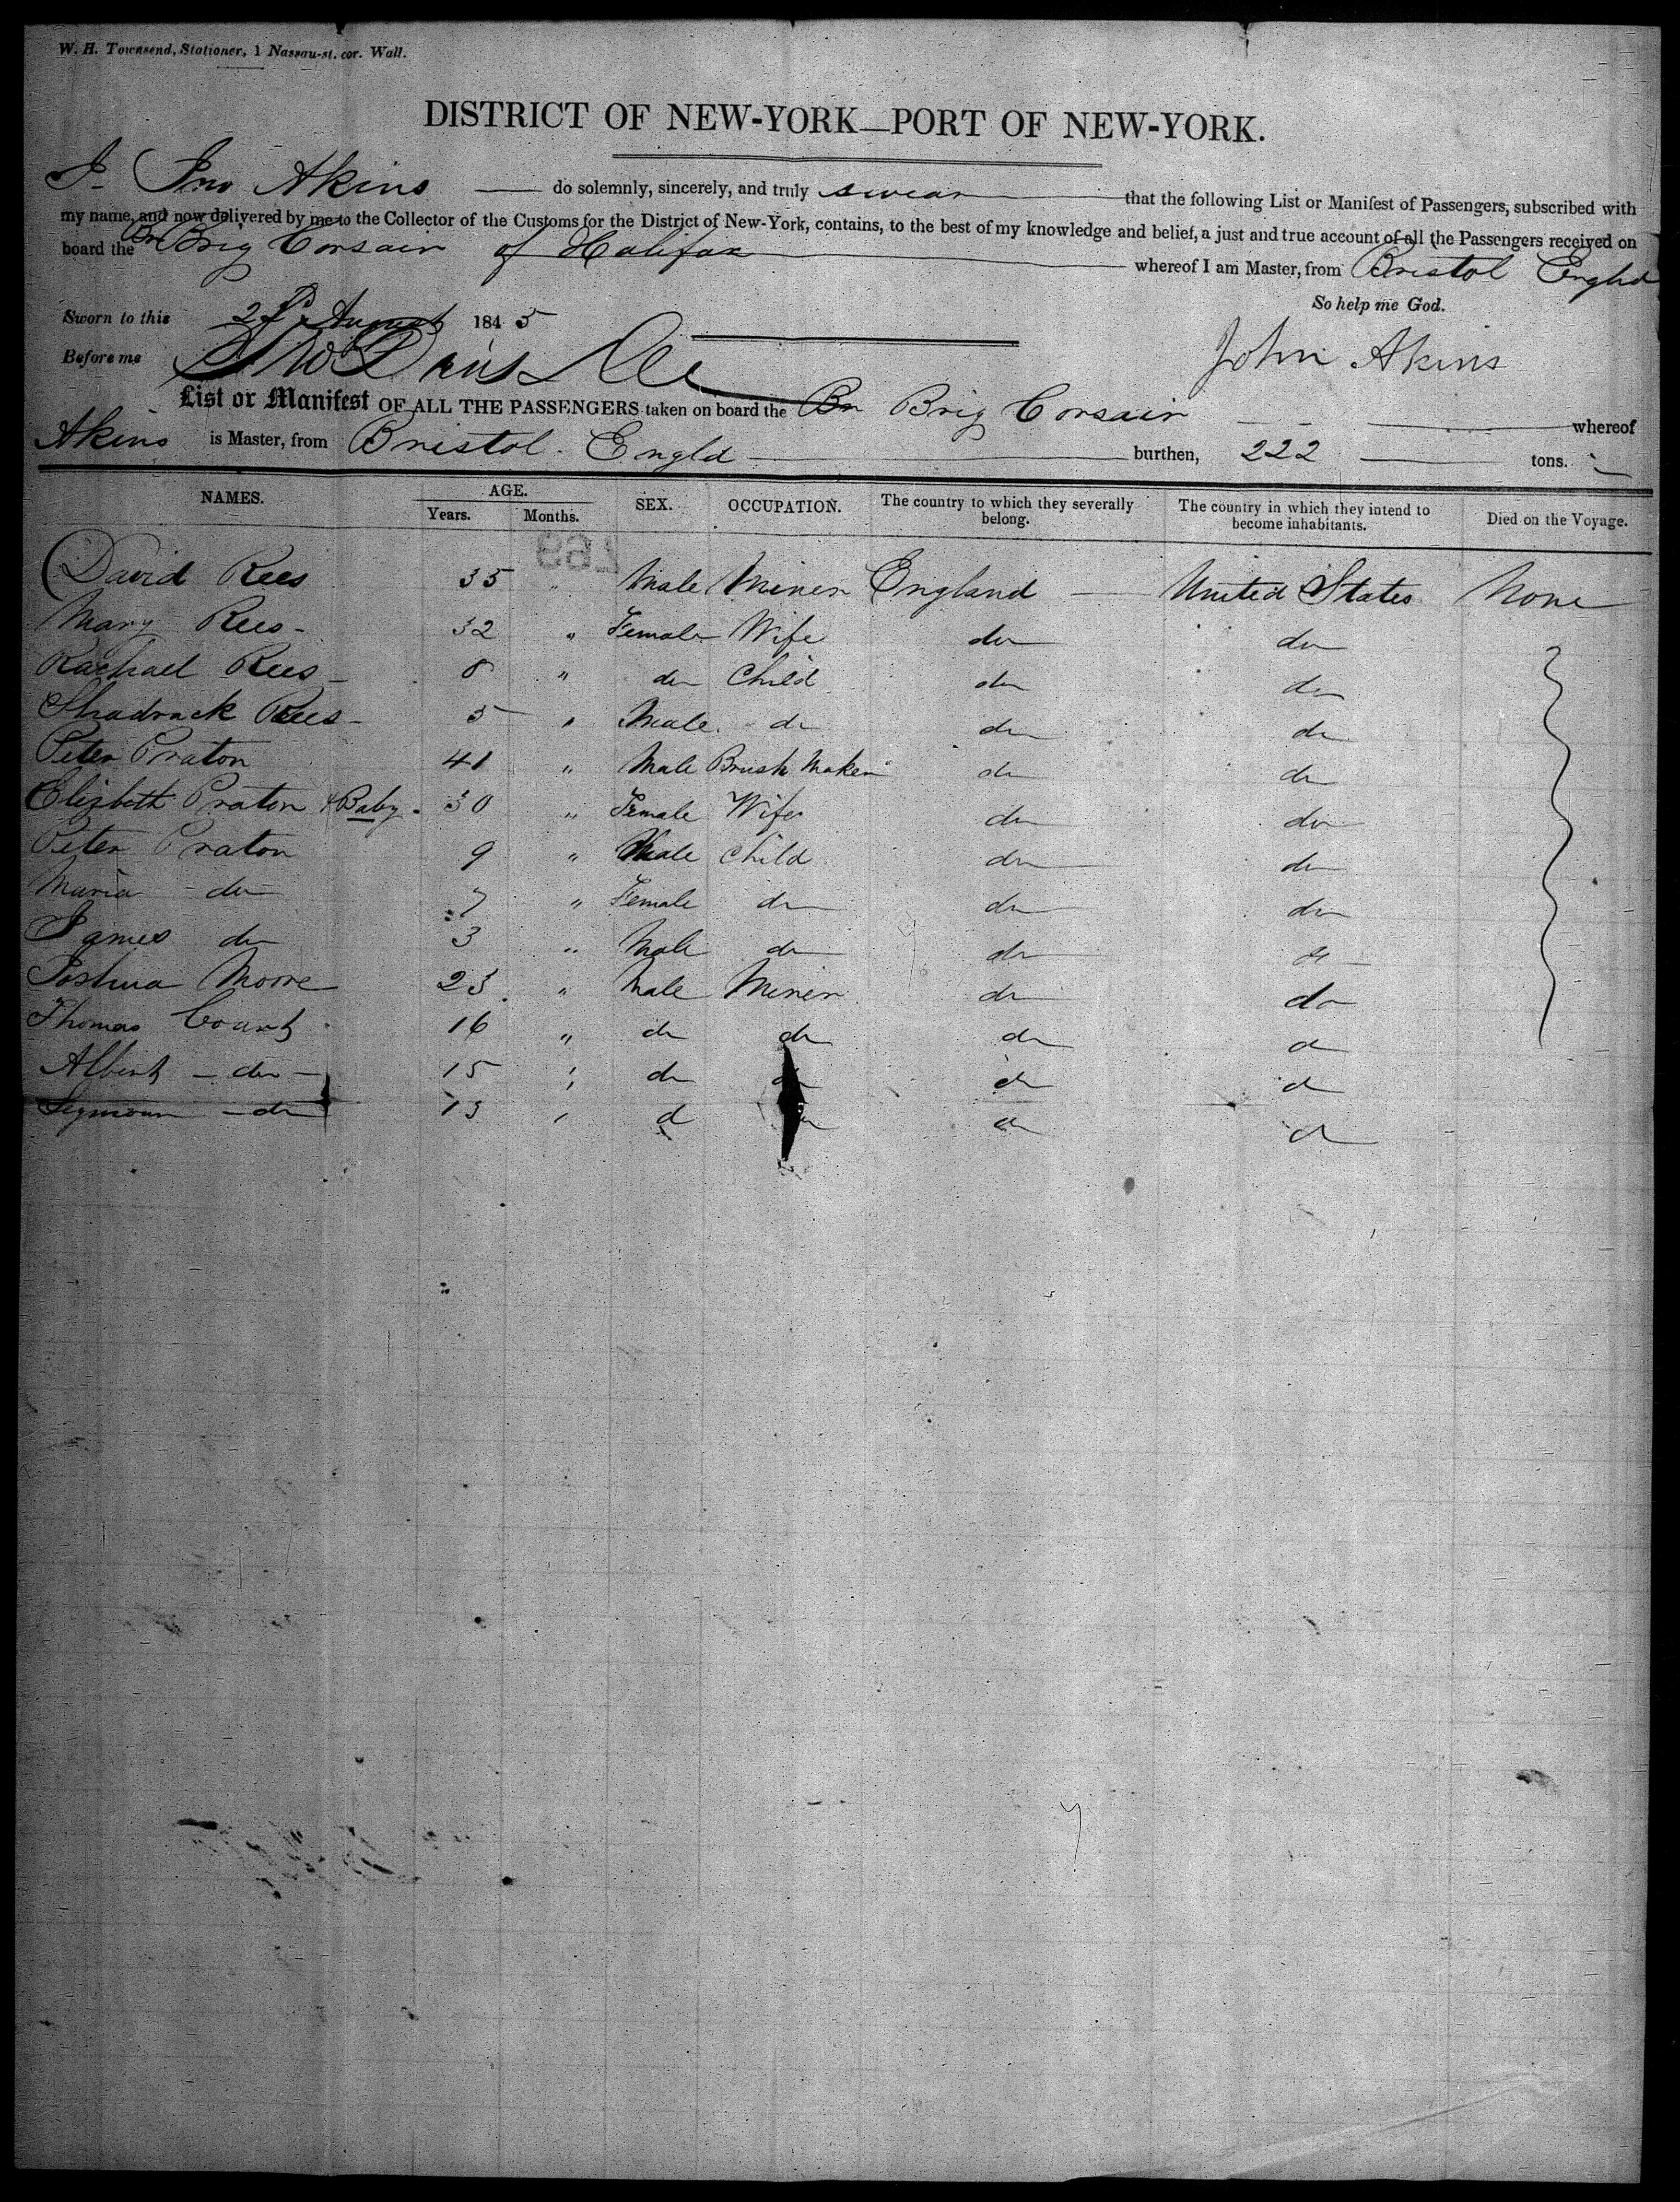 W. H. Townsend, Stationer, 1 Nassau-st. cor. Wall.
DISTRICT OF NEW-YORK—PORT OF NEW-YORK.
I Jno Akins do solemnly, sincerely, and truly swear that the following List or Manifest of Passengers, subscribed with
my name, and now delivered by me to the Collector of the Customs for the District of New-York, contains, to the best of my knowledge and belief, a just and true account of all the Passengers received on
board the Br Brig Corsair of Halifax whereof I am Master, from Bristol Engld
So help me God.
Sworn to this August 1845
Before me
John Akins
List or Manifest OF ALL THE PASSENGERS taken on board the Br Brig Corsair whereof
Akins is Master, from Bristol. Engld burthen, 222 tons.
NAMES. AGE. Years. Months. SEX. OCCUPATION. The country to which they severally belong. The country in which they intend to become inhabitants. Died on the Voyage.
David Rees 35 " Male Miner England United States None
Mary Rees 32 " Female Wife do do
Rachael Rees 8 " do Child do do
Shadrack Rees 5 " Male do do do
Peter Praton 41 " Male Brush Maker do do
Elizbeth Praton & Baby 30 " Female Wife do do
Peter Praton 9 " Male Child do do
Maria do 7 " Female do do do
James do 3 " Male do do do
Joshua Moore 23 " Male Miner do do
Thomas 16 " do do do d
Albert do 15 " do do do d
Seymour do 13 " d d d